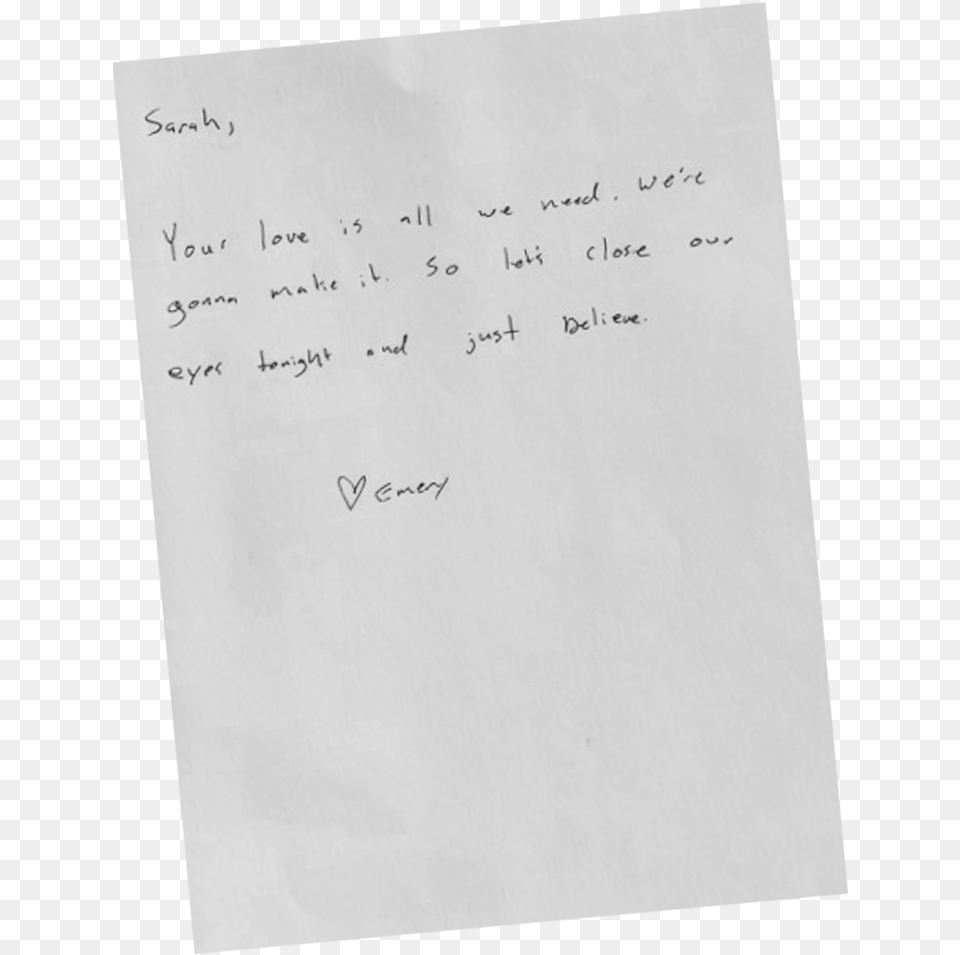 Sarah,
Your love is all we need. We're
gonna make it. So let's close our
eyes tonight and just believe.
♡ Emery